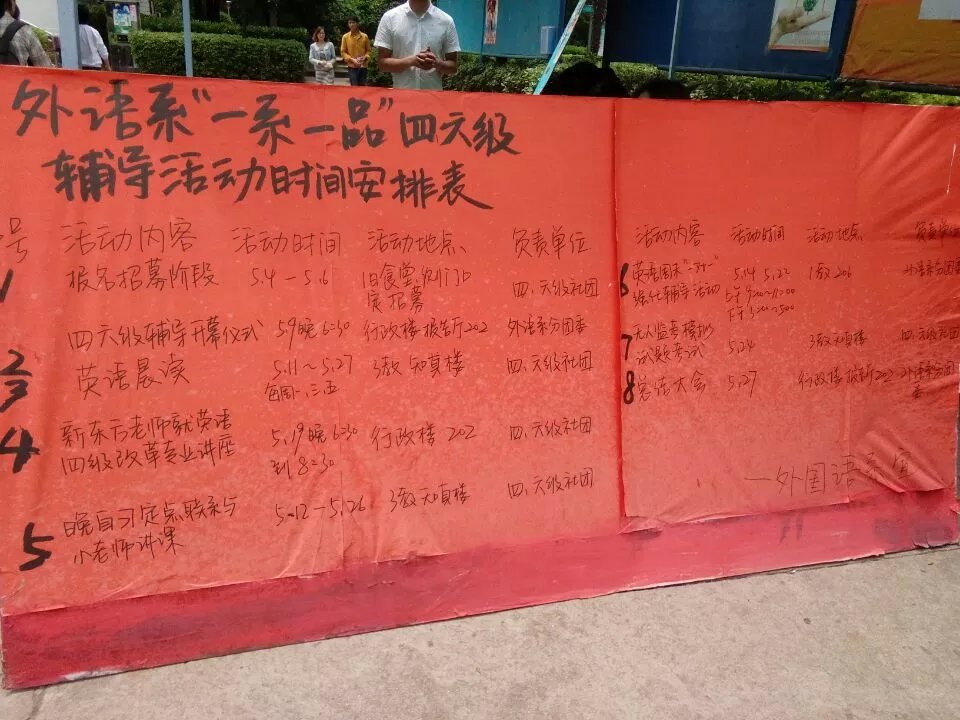 外语系"一系一品"四六级
辅导活动时间安排表
号 活动内容 活动时间 活动地点 负责单位
1 报名招募阶段 5.4-5.6 旧食堂、别门口 四、六级社团
定招募
2 四六级辅导开幕仪式 5.9晚6:30 行政楼报告厅202 外语系分团委
3 英语晨读 5.11~5.27 3教知真楼 四、六级社团
每周一、三、五
4 新东方老师就英语 5.19晚6:30 行政楼202 四、六级社团
四级改革专业讲座 到8:30
5 晚自习定点联系与 5.12-5.26 3教知真楼 四、六级社团
小老师讲课
活动内容 活动时间 活动地点 负责单
6 英语周末"一对一" 5.14 5.22 1教206 外语系分团委
强化辅导活动 上午9:00~11:00
下午3:00~5:00
7 无人监考模拟 5.24 3教知真楼 四、六级社团
试题考试
8 总结大会 5.27 行政楼报告厅202 外语系分团
委
—外国语系宣